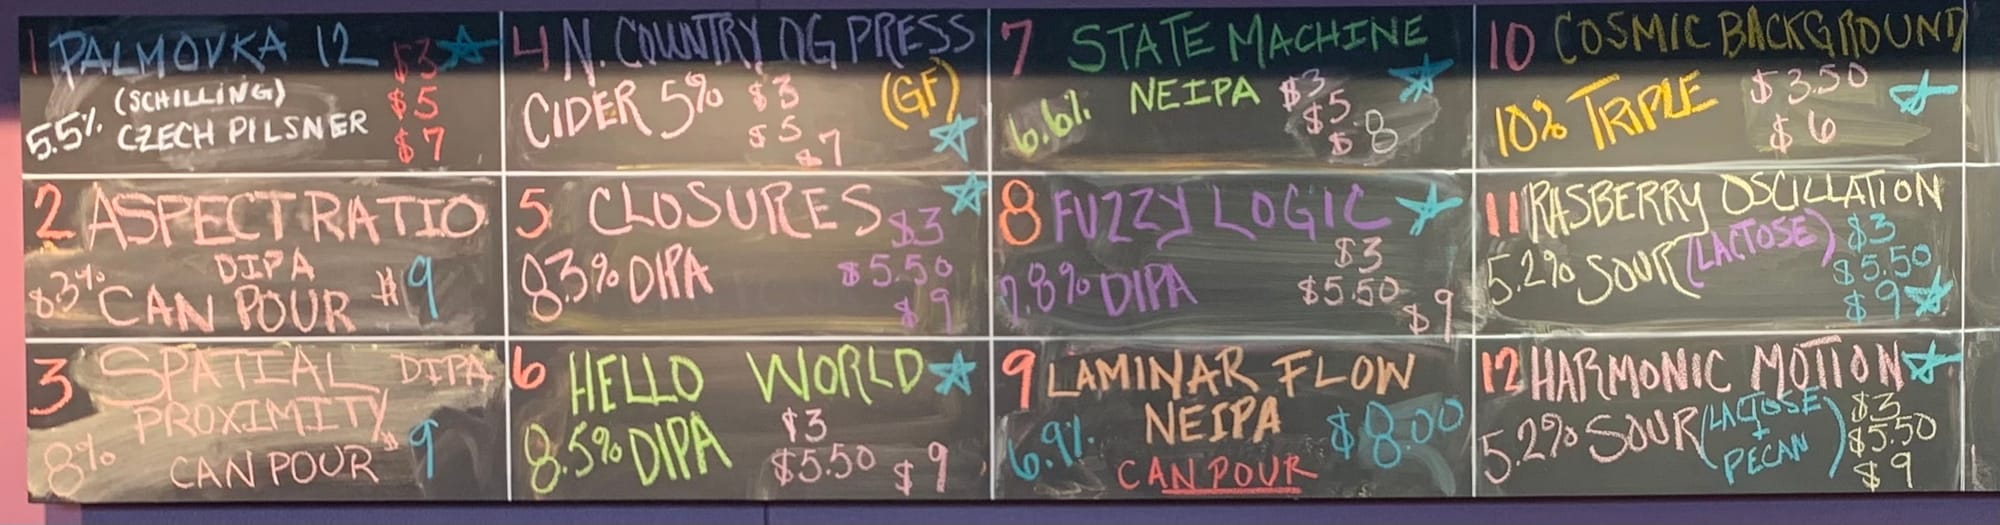 1 PALMOVKA 12 $3
(SCHILLING) $5
5.5% CZECH PILSNER $7
2 ASPECT RATIO
DIPA
8.3% CAN POUR $9
3 SPATIAL DIPA
PROXIMITY
8% CAN POUR $9
4 N. COUNTRY OG PRESS
CIDER 5% $3 (GF)
$5
$7
5 CLOSURES $3
8.3% DIPA $5.50
$9
6 HELLO WORLD
8.5% DIPA $3
$5.50 $9
7 STATE MACHINE
6.6% NEIPA $3
$5.
$8
8 FUZZY LOGIC
7.8% DIPA $3
$5.50
$9
9 LAMINAR FLOW
6.9% NEIPA $8.00
CAN POUR
10 COSMIC BACKGROUND
10% TRIPLE $3.50
$6
11 RASBERRY OSCILLATION
5.2% SOUR (LACTOSE) $3
$5.50
$9
12 HARMONIC MOTION
5.2% SOUR (LACTOSE $3
+ $5.50
PECAN) $9